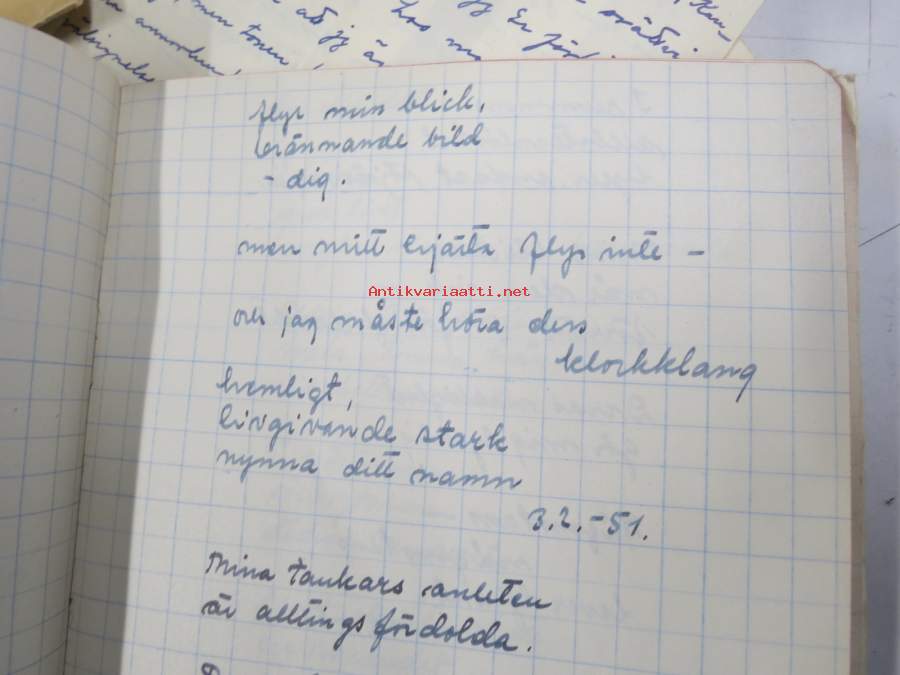 men tonen
att jag är
hos
Er
flyr min blick,
brännande bild
- dig.
men mitt hjärta flyr inte -
Antikvariaatti.net
och jag måste höra dess
klockklang
hemligt,
livgivande stark
nynna ditt namn
3.2.-51.
Mina tankars anleten
är alltings fördolda.